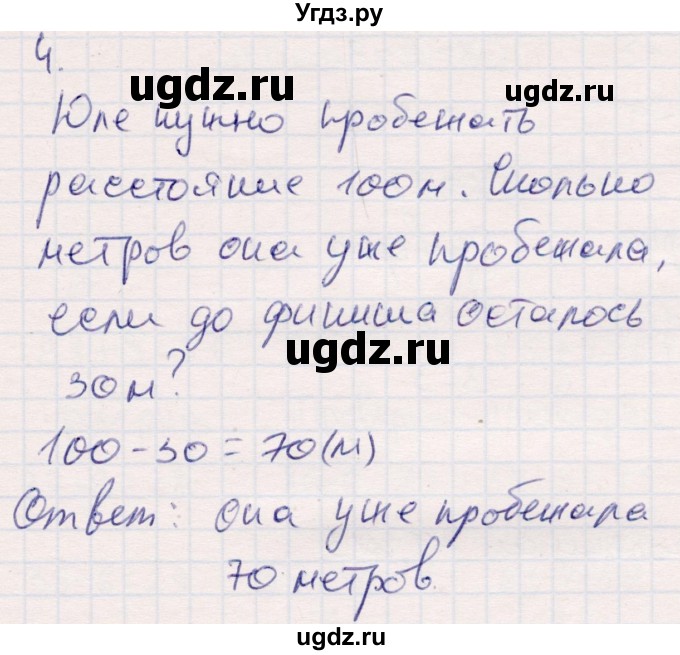 Угдз.ру
4.
ugdz.ru
ugdz.ru
Юле нужно пробежать
расстояние 100м. Сколько
метров она уже пробежала,
если до финиша осталось
ugdz.ru
30м?
100-30=70(м)
Ответ: она уже пробежала
ugdz.ru
ugdz.ru
70 метров.
ugdz.ru